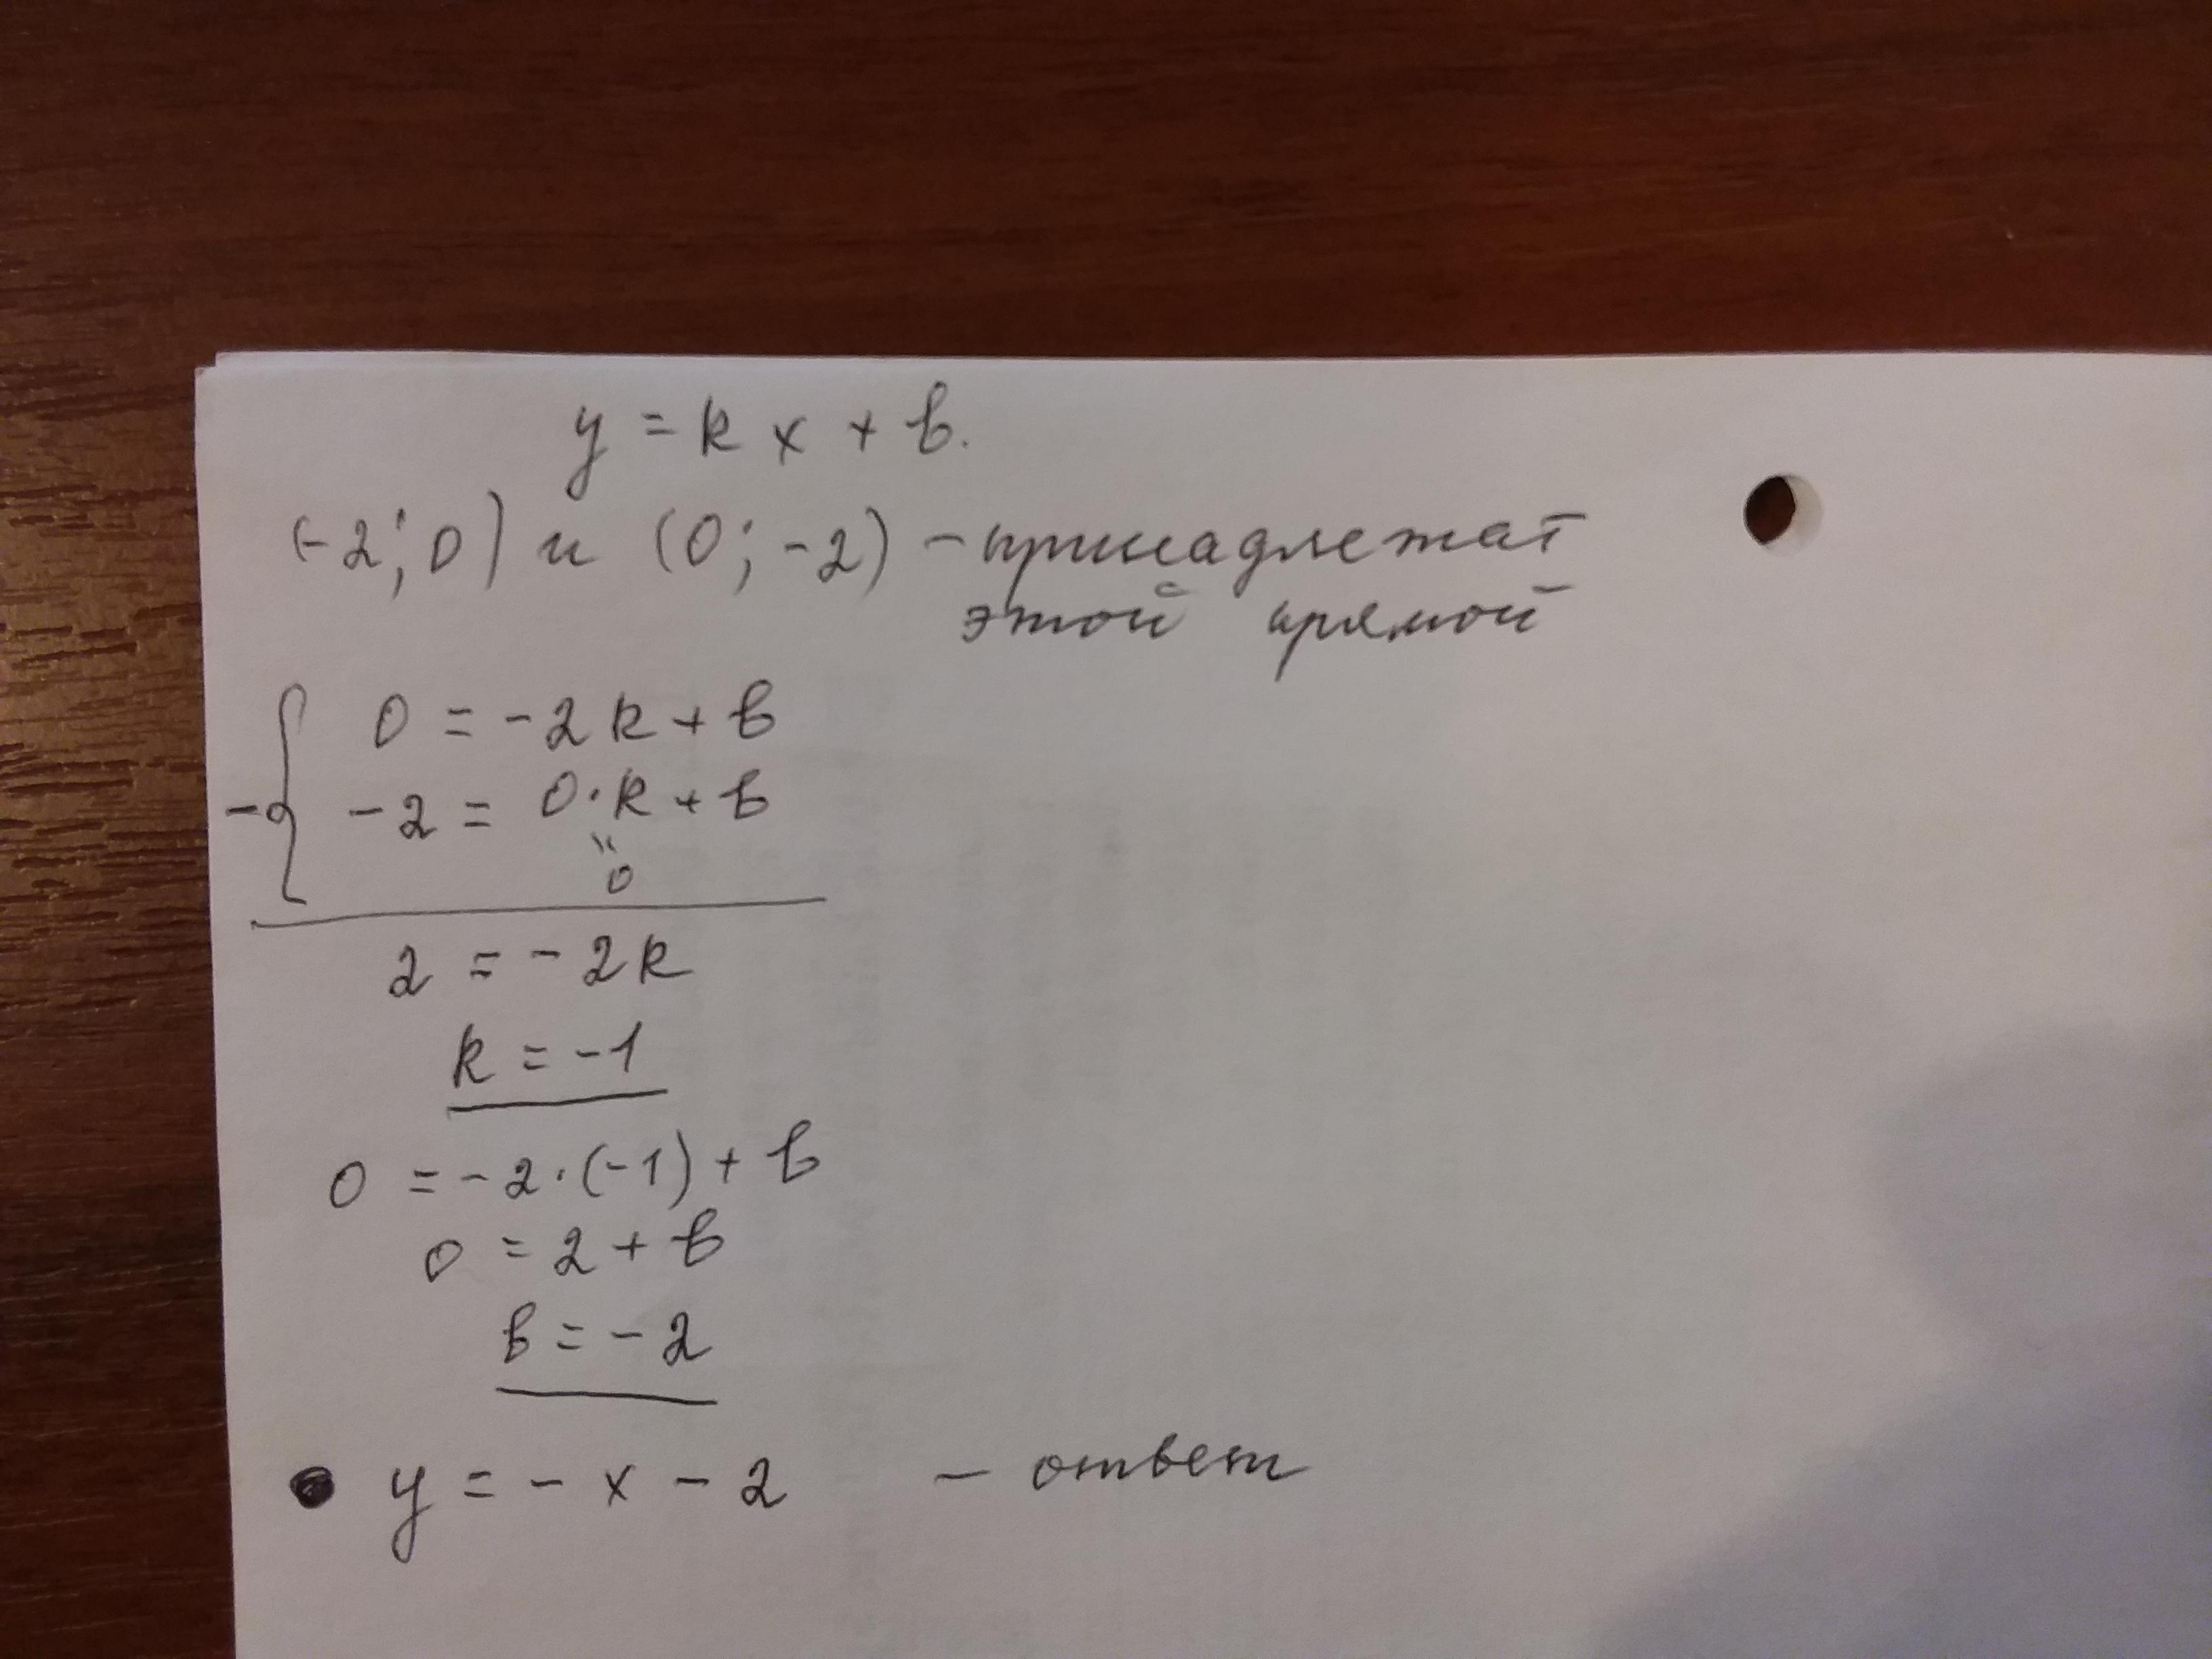 y = kx + b.
(-2; 0) и (0; -2) - принадлежат
этой прямой
0 = -2k + b
- { -2 = 0·k + b
"
0
2 = -2k
k = -1
0 = -2·(-1) + b
0 = 2 + b
b = -2
• y = -x - 2 - ответ